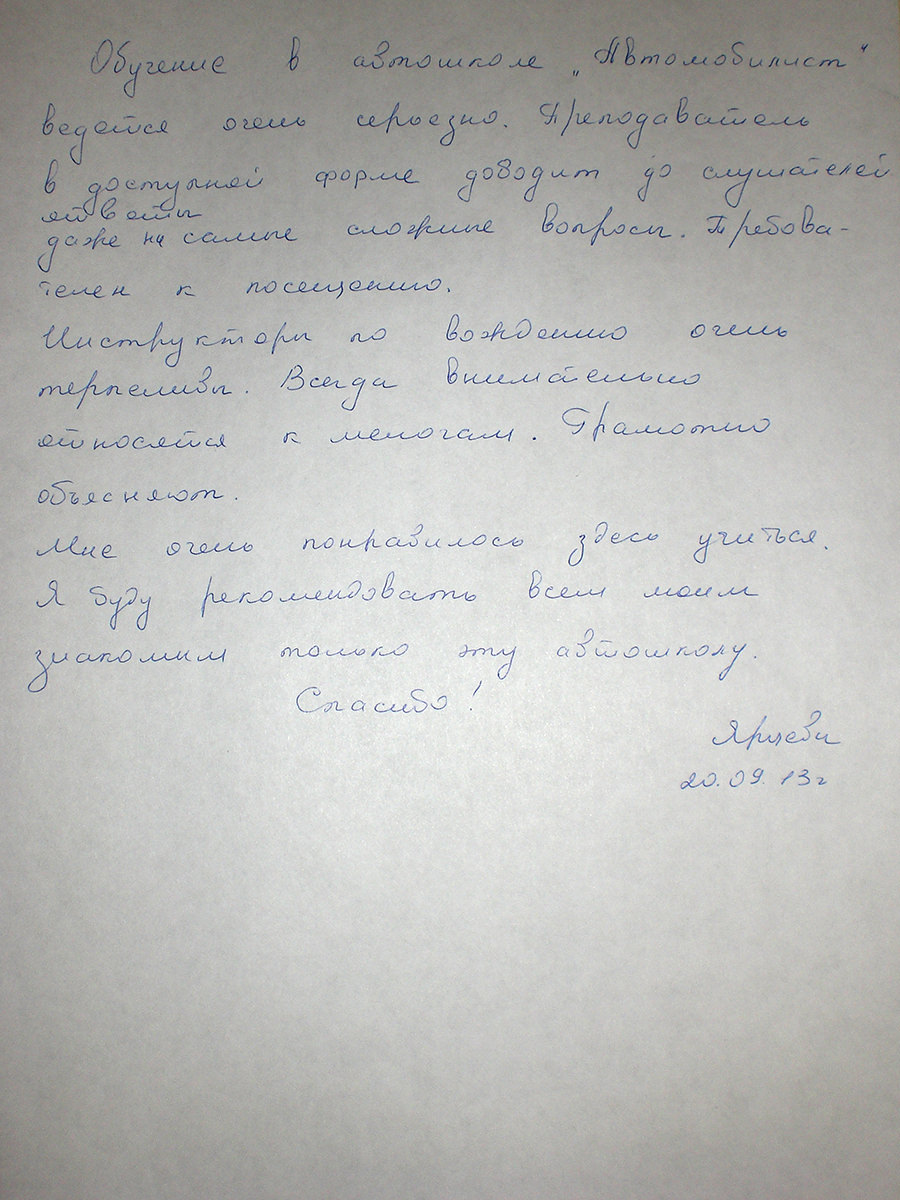 Обучение в автошколе „Автомобилист“
ведется очень серьезно. Преподаватель
в доступной форме доводит до слушателей
ответы
даже на самые сложные вопросы. Требова-
телен к посещению.
Инструкторы по вождению очень
терпеливы. Всегда внимательно
относятся к мелочам. Грамотно
объясняют.
Мне очень понравилось здесь учиться.
Я буду рекомендовать всем моим
знакомим только эту автошколу.
Спасибо!
20.09.13г